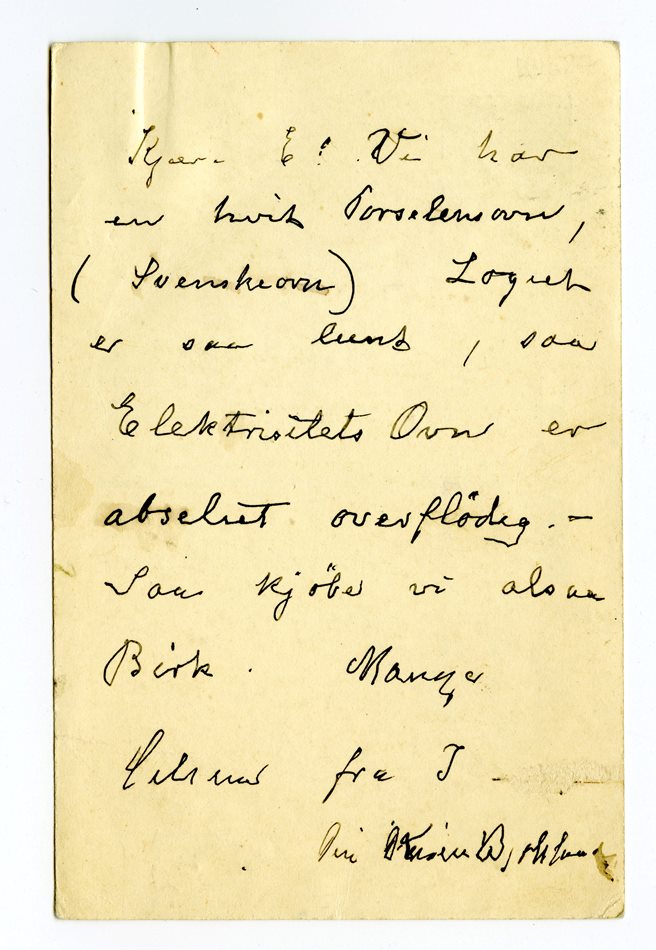 Kjære E! Vi har
en hvit Porselensovn,
(Svenskeovn) Logiet
er saa lunt, saa
Elektrisitets Ovn er
absolut overflödig. –
Saa kjöber vi alsaa
Birk. Mange
Hilsener fra I –
Din